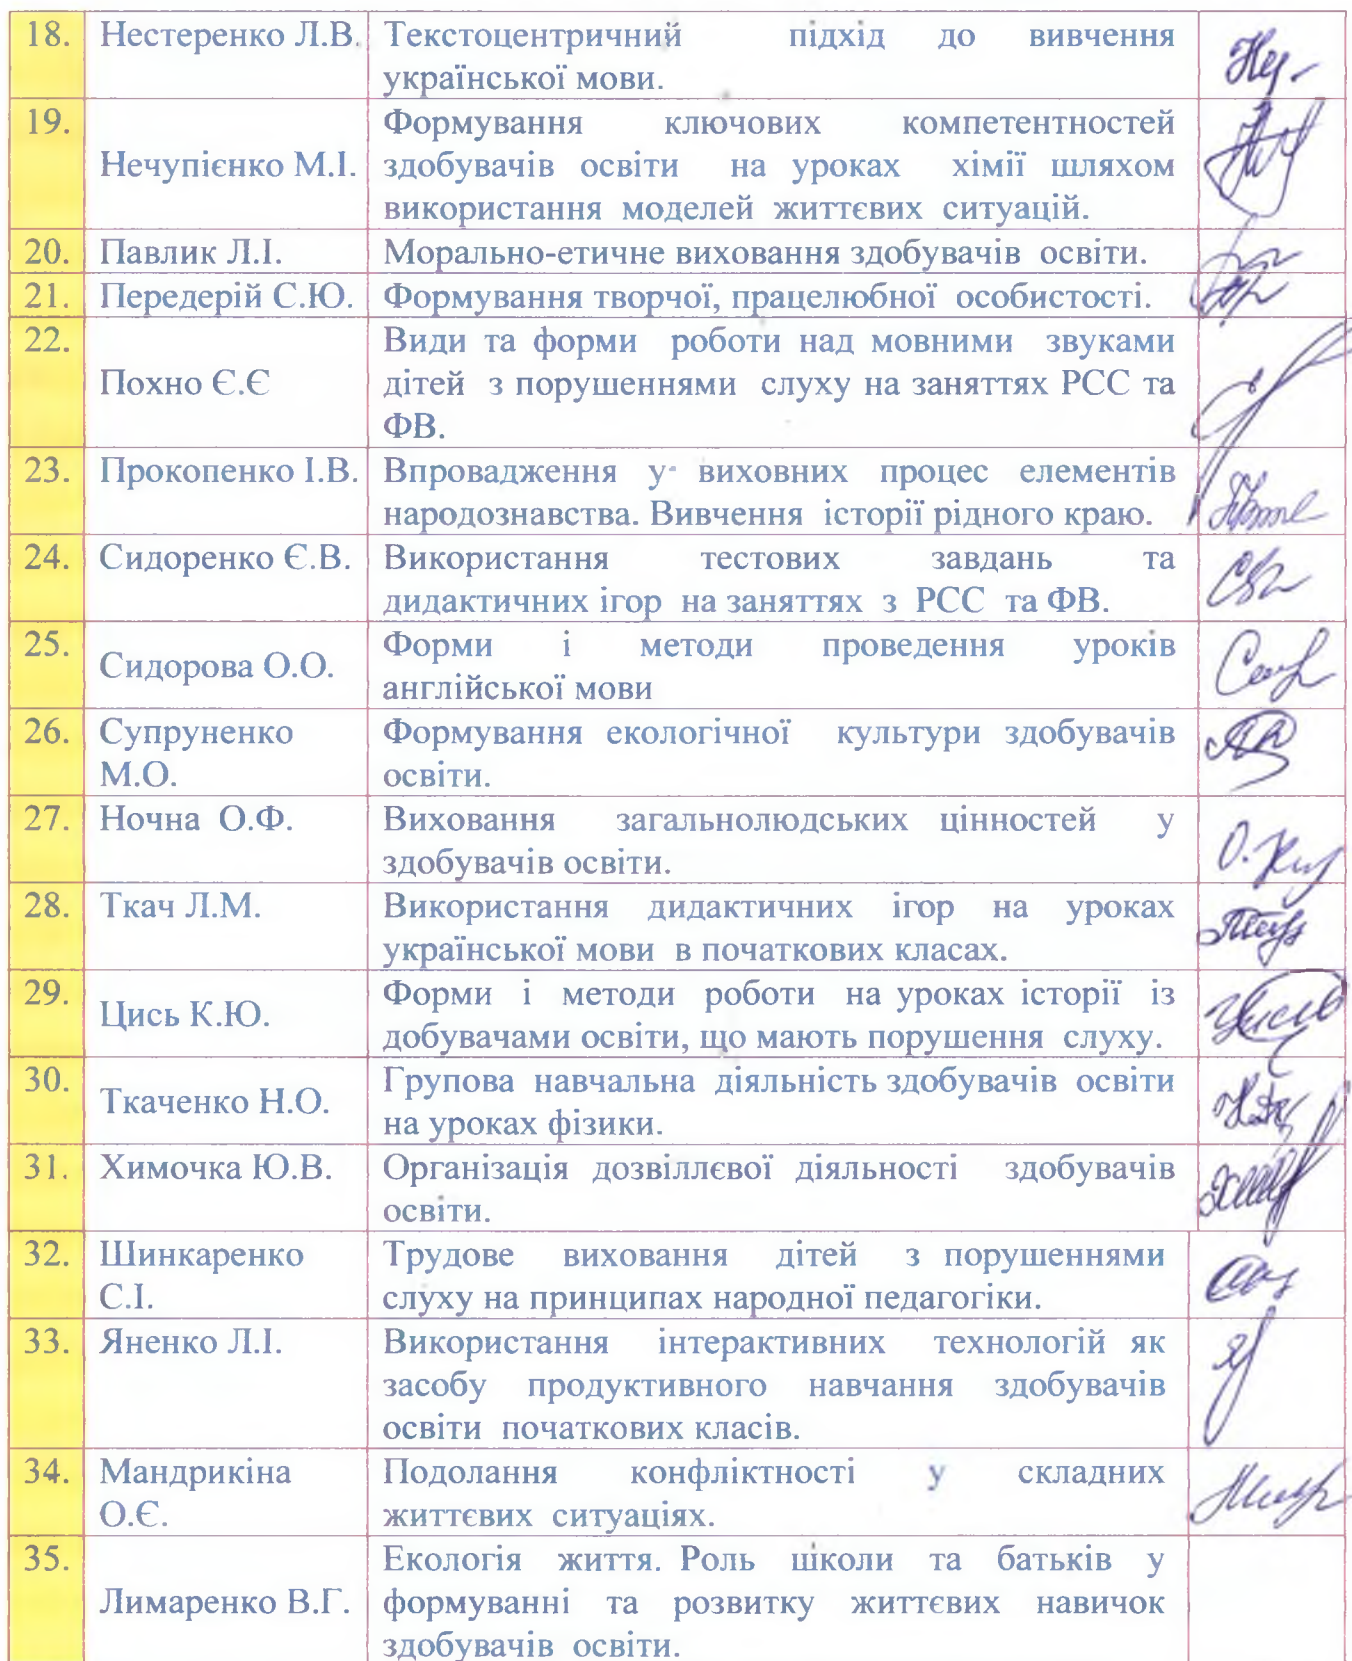 18. Нестеренко Л.В. Текстоцентричний підхід до вивчення
української мови.
19. Формування ключових компетентностей
Нечупієнко М.І. здобувачів освіти на уроках хімії шляхом
використання моделей життєвих ситуацій.
20. Павлик Л.І. Морально-етичне виховання здобувачів освіти.
21. Передерій С.Ю. Формування творчої, працелюбної особистості.
22. Види та форми роботи над мовними звуками
Похно Є.Є дітей з порушеннями слуху на заняттях РСС та
ФВ.
23. Прокопенко І.В. Впровадження у виховних процес елементів
народознавства. Вивчення історії рідного краю.
24. Сидоренко Є.В. Використання тестових завдань та
дидактичних ігор на заняттях з РСС та ФВ.
25. Форми і методи проведення уроків
Сидорова О.О. англійської мови
26. Супруненко Формування екологічної культури здобувачів
М.О. освіти.
27. Ночна О.Ф. Виховання загальнолюдських цінностей у
здобувачів освіти.
28. Ткач Л.М. Використання дидактичних ігор на уроках
української мови в початкових класах.
29. Форми і методи роботи на уроках історії із
Цись К.Ю. добувачами освіти, що мають порушення слуху.
30. Групова навчальна діяльність здобувачів освіти
Ткаченко Н.О. на уроках фізики.
31. Химочка Ю.В. Організація дозвіллєвої діяльності здобувачів
освіти.
32. Шинкаренко Трудове виховання дітей з порушеннями
С.І. слуху на принципах народної педагогіки.
33. Яненко Л.І. Використання інтерактивних технологій як
засобу продуктивного навчання здобувачів
освіти початкових класів.
34. Мандрикіна Подолання конфліктності у складних
О.Є. життєвих ситуаціях.
35. Екологія життя. Роль школи та батьків у
Лимаренко В.Г. формуванні та розвитку життєвих навичок
здобувачів освіти.